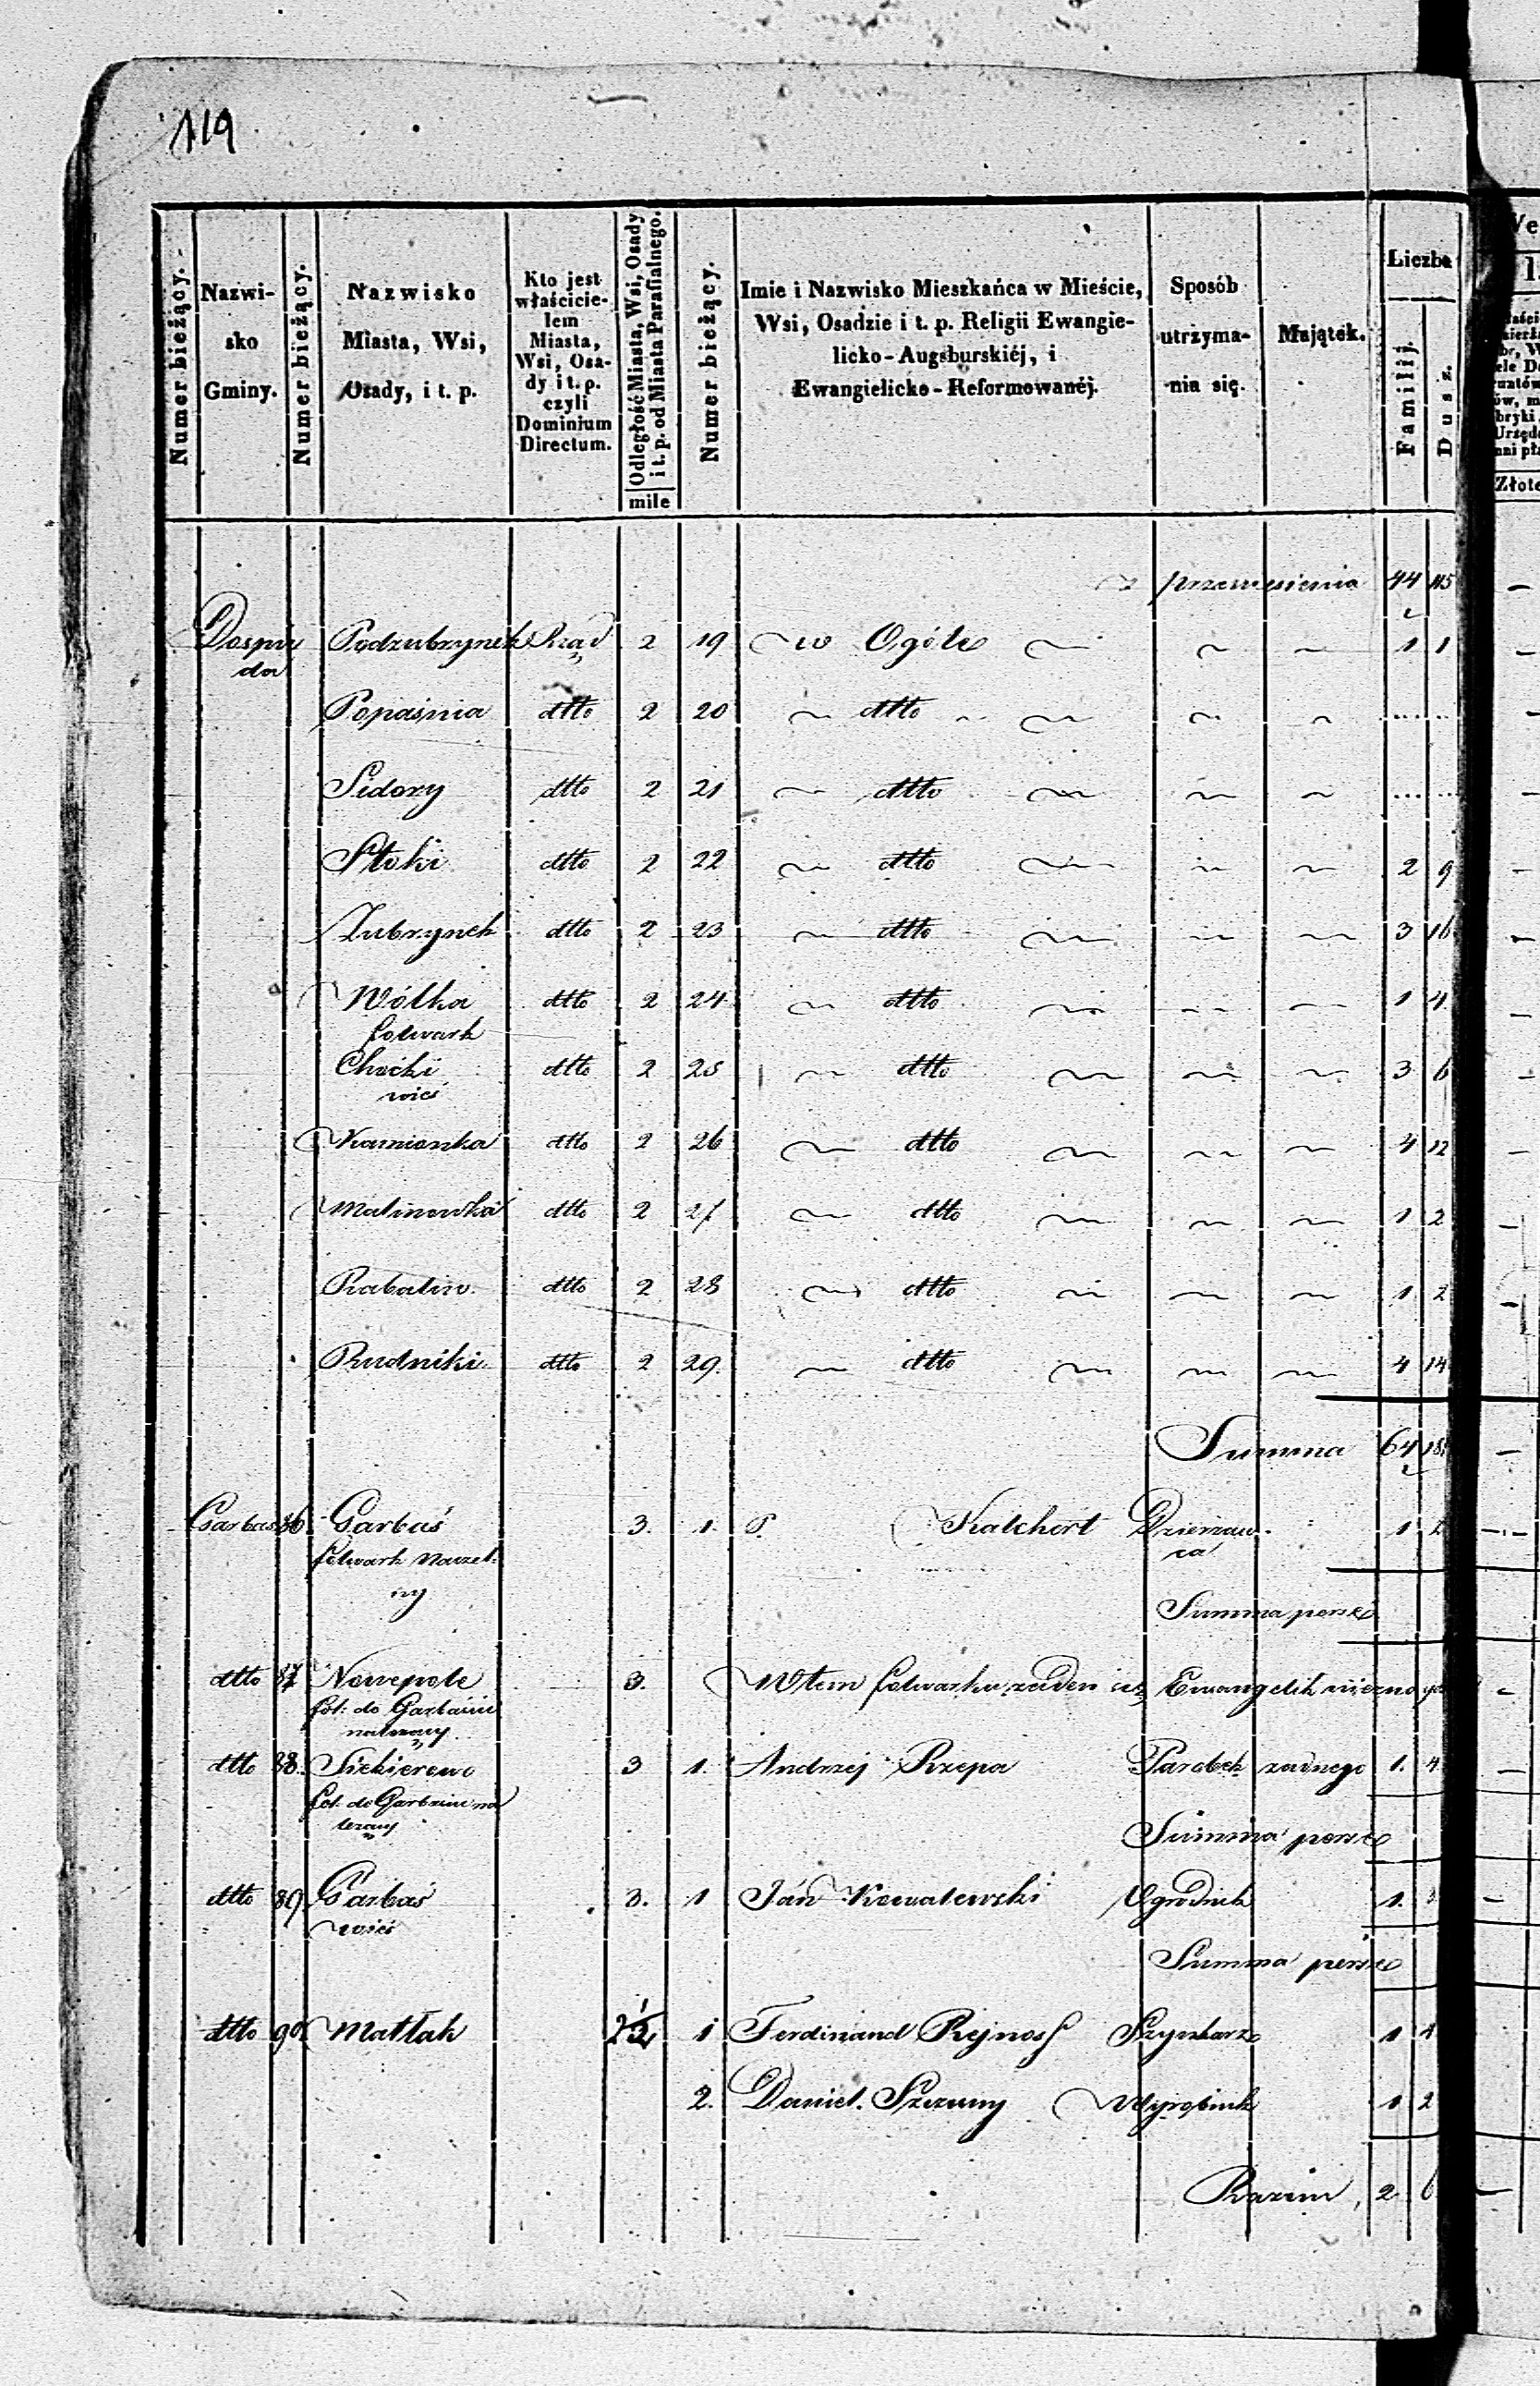 119
Numer bieżący.
Nazwi-
sko
Gminy.
Numer bieżący.
Nazwisko
Miasta, Wsi,
Osady, i t. p.
Kto jest
właścicie-
lem
Miasta,
Wsi, Osa-
dy i t. p.
czyli
Dominium
Directum.
Odległość Miasta, Wsi, Osady
i t. p. od Miasta Parafialnego.
mile
Numer bieżący.
Imie i Nazwisko Mieszkańca w Mieście,
Wsi, Osadzie i t. p. Religii Ewangie-
licko-Augsburskiéj, i
Ewangielicko-Reformowanéj.
Sposób
utrzyma-
nia się.
Majątek.
Liczba
Familij.
Dusz.
Złote
z przeniesienia 44 115
Dospu Podzubrynek Rząd 2 19 w Ogóle 1 1
da
Popaśnia dtto 2 20 dtto
Sidory dtto 2 21 dtto
Stoki dtto 2 22 dtto 2 9
Zubrynek dtto 2 23 dtto 3 16
Wólka dtto 2 24 dtto 1 4
folwark
Choćki dtto 2 25 dtto 3 6
wieś
Kamionka dtto 2 26 dtto 4 12
Malinowka dtto 2 27 dtto 1 2
Rabalin dtto 2 28 dtto 1 2
Rudniki dtto 2 29. dtto 4 14
Summa 64
Garbas 86 Garbaś 3. 1. P. Kalchert Dzierzaw- 1
folwark naczel- ca
ny
Summa per se
dtto 87 Nowepole 3. W tem folwarku zaden Ewangelik
fol: do Garbasia
nalezący
dtto 88. Siekierewo 3 1. Andrzej Rzepa Parobek zadnego 1. 4
fol: do Garbasia na
lezący
Summa per se
dtto 89 Garbaś 3. 1 Jan Kowalewski Ogrodnik 1.
wieś
Summa per se
dtto 90. Matłak 2 1/2 1 Ferdinand Rejnosf Szynkarz 1 4
2. Daniel Szczuny Wyrobnik 1 2
Razem 2 6